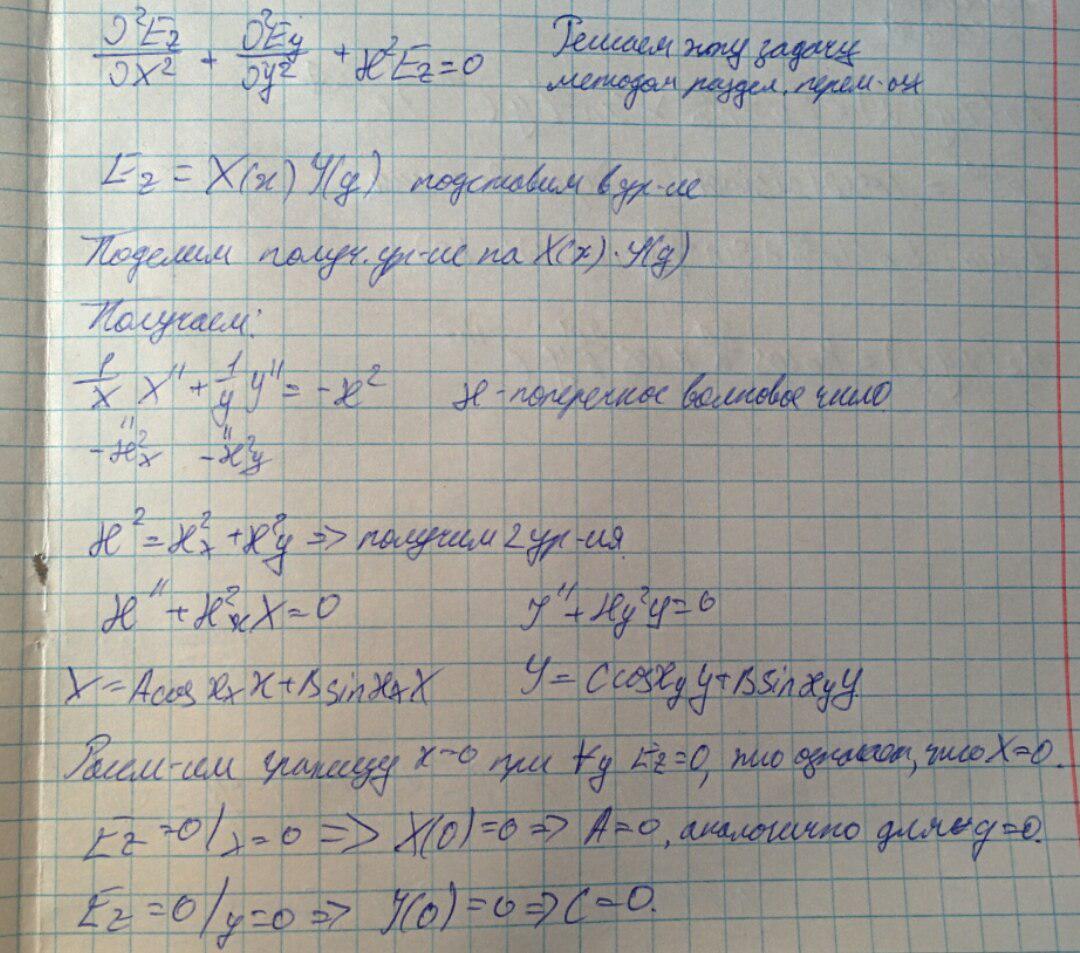 ∂²Ez/∂x² + ∂²Ey/∂y² + ϰ²Ez = 0 Решаем эту задачу
методом раздел. перем-ых
Ez = X(x) Y(y) подставим в ур-ие
Поделим получ. ур-ие на X(x)·Y(y)
Получаем:
1/X X'' + 1/Y Y'' = -ϰ² ϰ - поперечное волновое число
-ϰ²x -ϰ²y
ϰ² = ϰ²x + ϰ²y => получим 2 ур-ия
ϰ'' + ϰ²x X = 0 Y'' + ϰy² Y = 0
X = A cos ϰx x + B sin ϰx x Y = C cos ϰy y + B sin ϰy y
Рассм-им границу x=0 при ∀y Ez=0, это означает, что X=0.
Ez = 0 / x=0 => X(0)=0 => A=0, аналогично для y=0.
Ez = 0 / y=0 => Y(0)=0 => C=0.